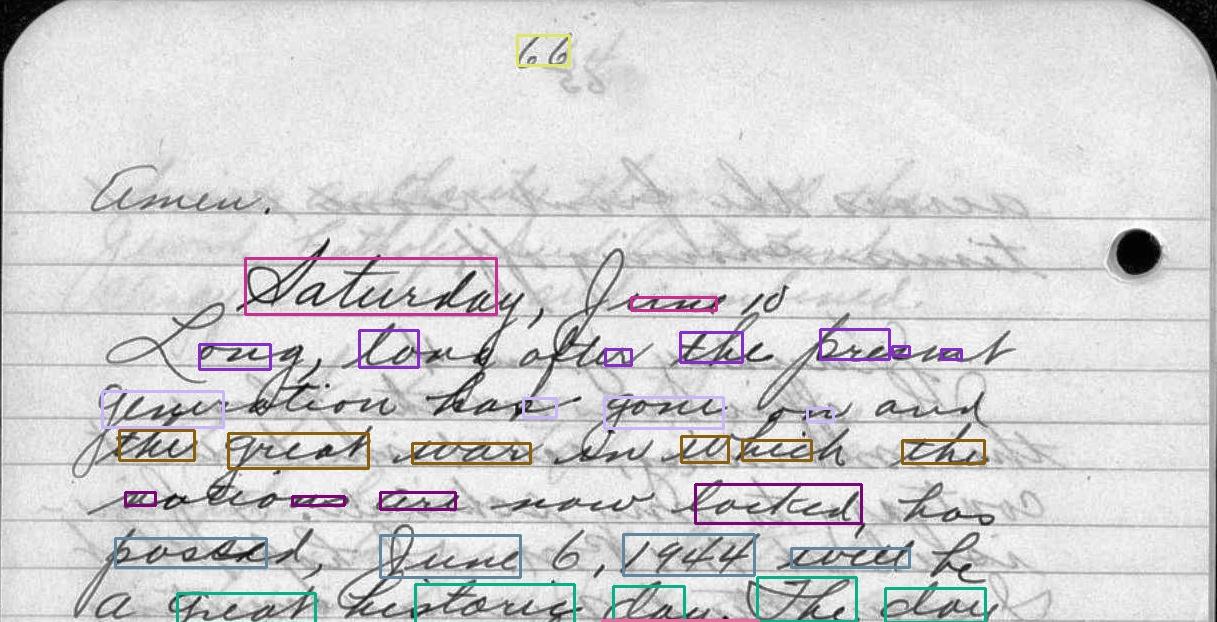 66
Amen.
Saturday, June 10
Long, long after the present
generation has gone on and
the great war in which the
nations are now locked, has
passed, June 6, 1944 will be
a great historic day. The day